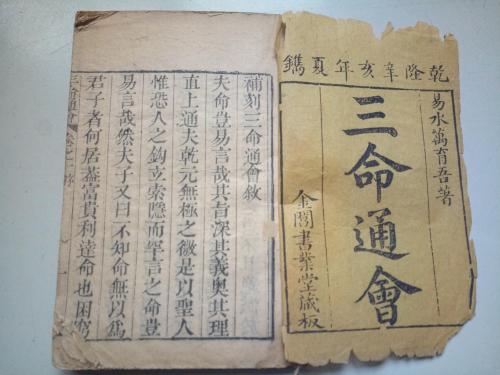 乾隆辛亥年夏鐫
易水萬育吾著
三命通會
金閶書業堂藏板
補刻三命通會敘
夫命豈易言哉其旨深其義奧其理
直上通夫乾元無極之微是以聖人
惟恐人之鉤立索隱而罕言之命豈
易言哉然夫子又曰不知命無以爲
君子者何居葢富貴利達命也困窮
三命通會